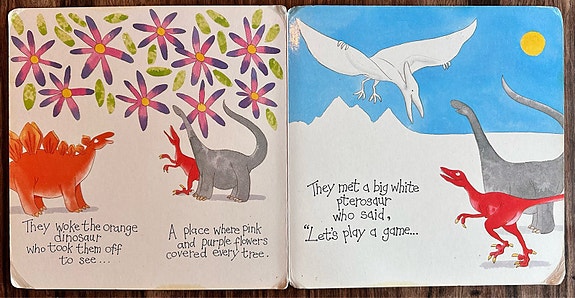 They woke the orange
dinosaur
who took them off
to see...
A place where pink
and purple flowers
covered every tree.
They met a big white
pterosaur
who said,
"Let's play a game...